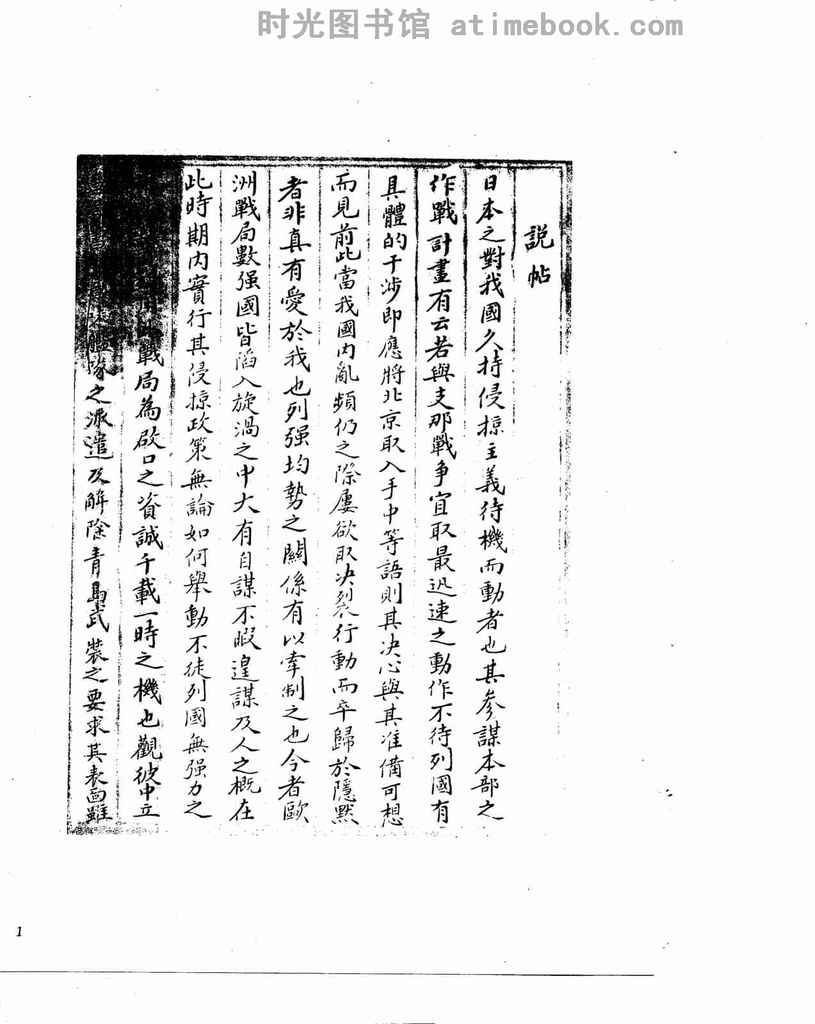 时光图书馆 atimebook.com
説帖
日本之對我國久持侵掠主義待機而動者也其參謀本部之
作戰計畫有云若與支那戰爭宜取最迅速之動作不待列國有
具體的干涉即應將北京取入手中等語則其决心與其准備可想
而見前此當我國內亂頻仍之際屢欲取决裂行動而卒歸於隱默
者非真有愛於我也列强均勢之關係有以牽制之也今者歐
洲戰局數强國皆陷入旋渦之中大有自謀不暇遑謀及人之概在
此時期內實行其侵掠政策無論如何舉動不徒列國無强力之
戰局為啟口之資誠千載一時之機也觀彼中立
艦隊之派遣及解除青島武裝之要求其表面雖
1